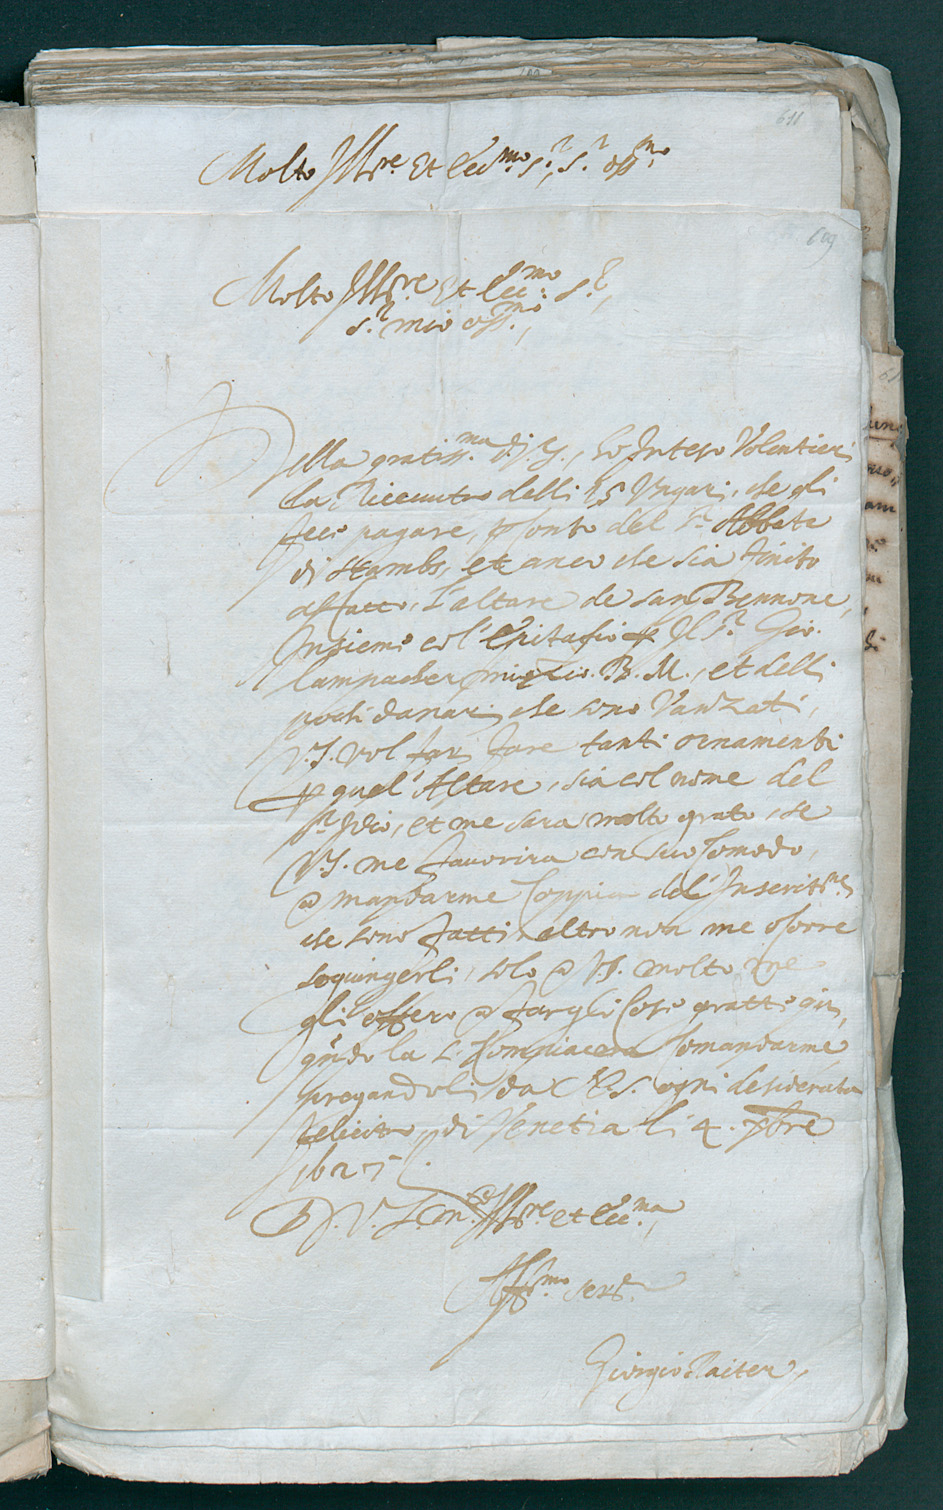 611
Molto Ill.re Et Ecc.mo S.r, S.r oss.mo
609
Molto Ill.re Et Ecc.mo S.r,
S.r mio oss.mo,
Della gratiss.ma di V.S., ho Inteso Volentieri
la Riceuuta delli 15 Vngari, che gli
feci pagare, p Conto del S.r Abbate
di Stambs, et anco che sia finito
affatto, l'altare de san Bennone,
Insieme col' Epitafio p Il S.r Gio.
Lampacher mio Zio. B. M., et delli
pochi danari che sono Vanzati,
V.S. vol far fare tanti ornamenti
p quel' Altare, sia col nome del
S.r Idio, et me sara molto grato, se
V.S. me fauorira con suo Comodo,
a mandarme Coppia del' Inscrit.ne,
che sono fatti altro non me oforre
sogiungerli, solo a VS. molto me
gli offero a fargli Cose gratte
q.ndo la S. Compiacera Comandarme
pregandoli da N.S. ogni desiderata
felicita, di Venetia li 4. xbre
1627
D. V. S. Ill.re et Ecc.ma,
Aff.mo Ser.re
Giorgio Raiter,